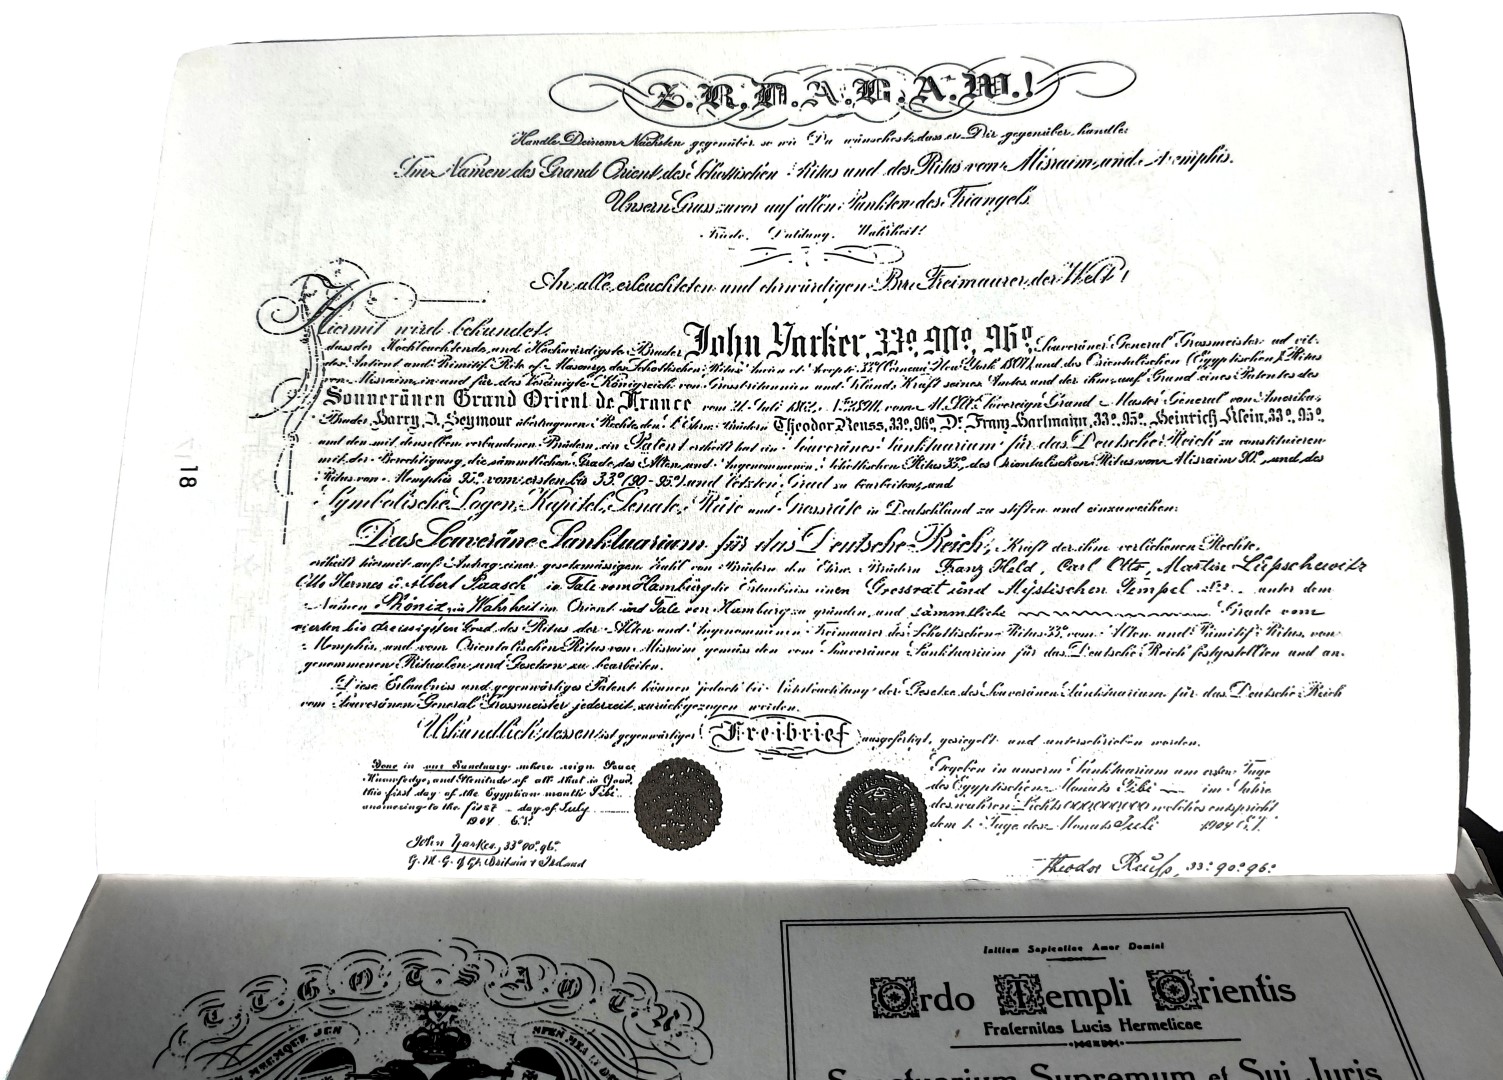 Z.R.D.A.B.A.W.!
Handle Deinem Nächsten gegenüber so wie Du wünschest, dass er Dir gegenüber handle
Im Namen des Grand Orient des Schottischen Ritus und des Ritus von Misraim und Memphis.
Unsern Gruss zuvor auf allen Punkten des Triangels.
Friede. Duldung. Wahrheit!
An alle erleuchteten und ehrwürdigen Brr. Freimaurer der Welt!
Hiermit wird bekundet,
dass der Hochleuchtende und Hochwürdigste Bruder John Yarker, 33º, 90º, 96º, Souveräner General Grossmeister ad vit.
des Antient and Primitif Rite of Masonry, des Schottischen Ritus 33º (Cerneau New-York 1807) und des Orientalischen (Egyptischen) Ritus
von Misraim, in und für das Vereinigte Königreich von Grossbritannien und Irland, Kraft seines Amtes und der ihm auf Grund eines Patentes des
Souveränen Grand Orient de France vom 21. Juli 1862, vom Sovereign Grand Master General von Amerika,
Bruder Harry J. Seymour übertragenen Rechte, den Theodor Reuss, 33º, 96º, Dr. Franz Hartmann, 33º, 95º, Heinrich Klein, 33º, 95º,
und den mit denselben verbundenen Brüdern, ein Patent erteilt hat ein Souveränes Sanktuarium für das Deutsche Reich zu constituieren
mit der Berechtigung, die sämmtlichen Grade des Alten und Angenommenen Schottischen Ritus 33º, des Orientalischen Ritus von Misraim 90º, und des
Ritus von Memphis 95º, vom ersten bis 33º (90-95º) und letzten Grad zu bearbeiten, und
Symbolische Logen, Kapitel, Senate, Räte und Grossräte in Deutschland zu stiften und einzuweihen:
Das Souveräne Sanktuarium für das Deutsche Reich, Kraft der ihm verliehenen Rechte,
erteilt hiermit auf Antrag einer gesetzmässigen Zahl von Brüdern den Ehrw. Brüdern Franz Held, Carl Otto, Martin Lupschewitz
Otto Hermes u. Albert Paasch in Tale von Hamburg die Erlaubniss einen Grossrat und Mystischen Tempel unter dem
Namen Phönix zur Wahrheit im Orient und Tale von Hamburg zu gründen, und sämmtliche Grade vom
vierten bis dreissigsten Grad des Ritus der Alten und Angenommenen Freimaurer des Schottischen Ritus 33º, vom Alten und Primitif Ritus von
Memphis, und vom Orientalischen Ritus von Misraim gemäss den vom Souveränen Sanktuarium für das Deutsche Reich festgestellten und an-
genommenen Ritualen und Gesetzen zu bearbeiten.
Diese Erlaubniss und gegenwärtiges Patent können jedoch bei Nichtbeachtung der Gesetze des Souveränen Sanktuarium für das Deutsche Reich
vom Souveränen General Grossmeister jederzeit zurückgezogen werden.
Urkundlich dessen ist gegenwärtiger Freibrief ausgefertigt, gesiegelt und unterschrieben worden.
Done in our Sanctuary where reign Peace
Knowledge, and Plenitude of all that is Good,
this first day of the Egyptian month Tibi
answering to the first day of July
1904 E.V.
John Yarker, 33º 90º 96º
G. M. G. of Gt. Britain & Ireland
Gegeben in unserm Sanktuarium am ersten Tage
des Egyptischen Monats Tibi im Jahre
des wahren Lichts 000,000,000 welches entspricht
dem 1. Tage des Monats Juli 1904 E.V.
Theodor Reuß, 33º 90º 96º
18
I.T.G.O.T.S.A.O.T.
Initium Sapientiae Amor Domini
Ordo Templi Orientis
Fraternitas Lucis Hermeticae
Sanctuarium Supremum et Sui Juris